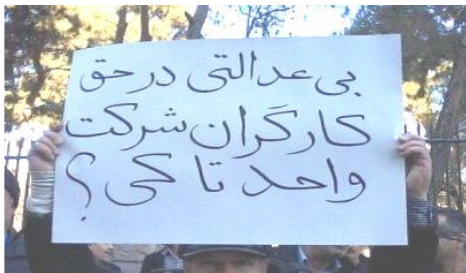 بی عدالتی در حق
کارگران شرکت
واحد تا کی ؟